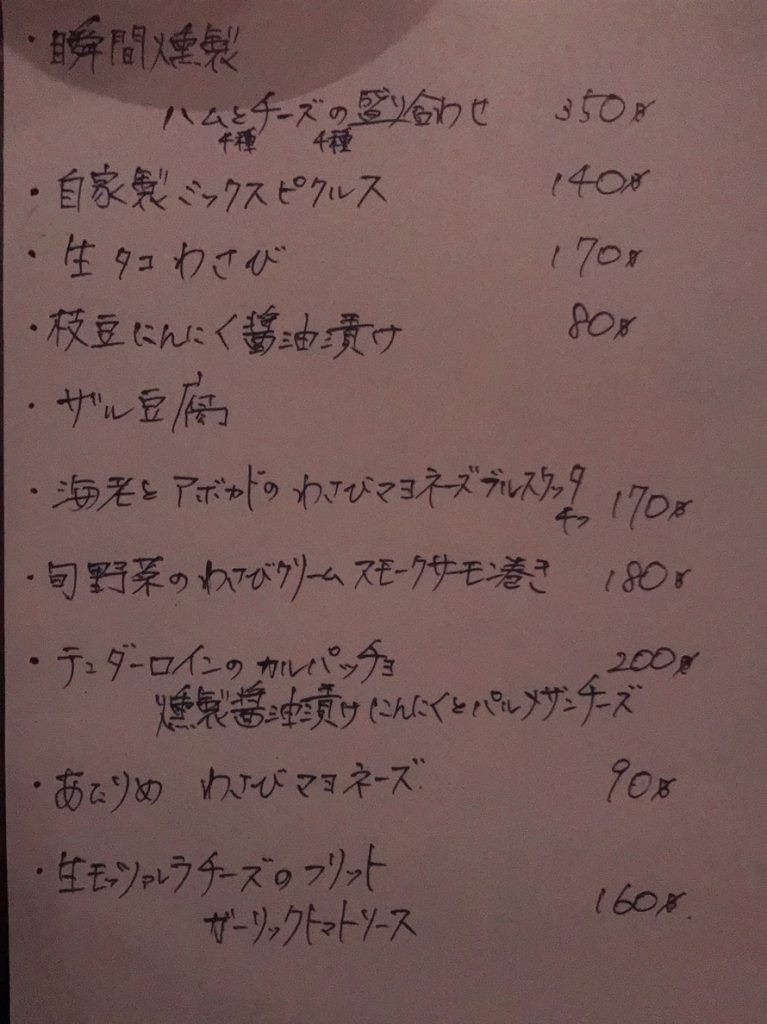 ・瞬間燻製
ハムとチーズの盛り合わせ 350฿
4種 4種
・自家製ミックスピクルス 140฿
・生タコわさび 170฿
・枝豆にんにく醤油漬け 80฿
・ザル豆腐
・海老とアボカドのわさびマヨネーズブルスケッタ 170฿
・旬野菜のわさびクリームスモークサーモン巻き 180฿
・テンダーロインのカルパッチョ 200฿
燻製醤油漬けにんにくとパルメザンチーズ
・あたりめ わさびマヨネーズ 90฿
・生モッツァレラチーズのフリット
ガーリックトマトソース 160฿